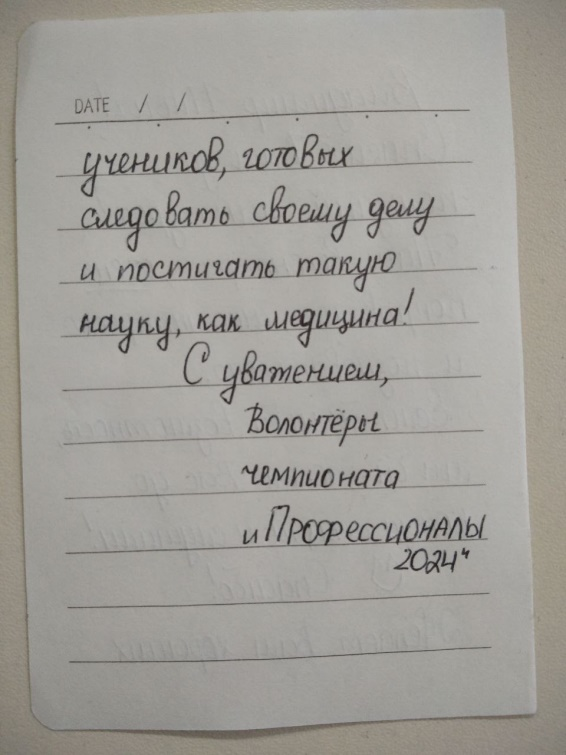 DATE / /
учеников, готовых
следовать своему делу
и постигать такую
науку, как медицина!
С уважением,
Волонтёры
чемпионата
„Профессионалы
2024"